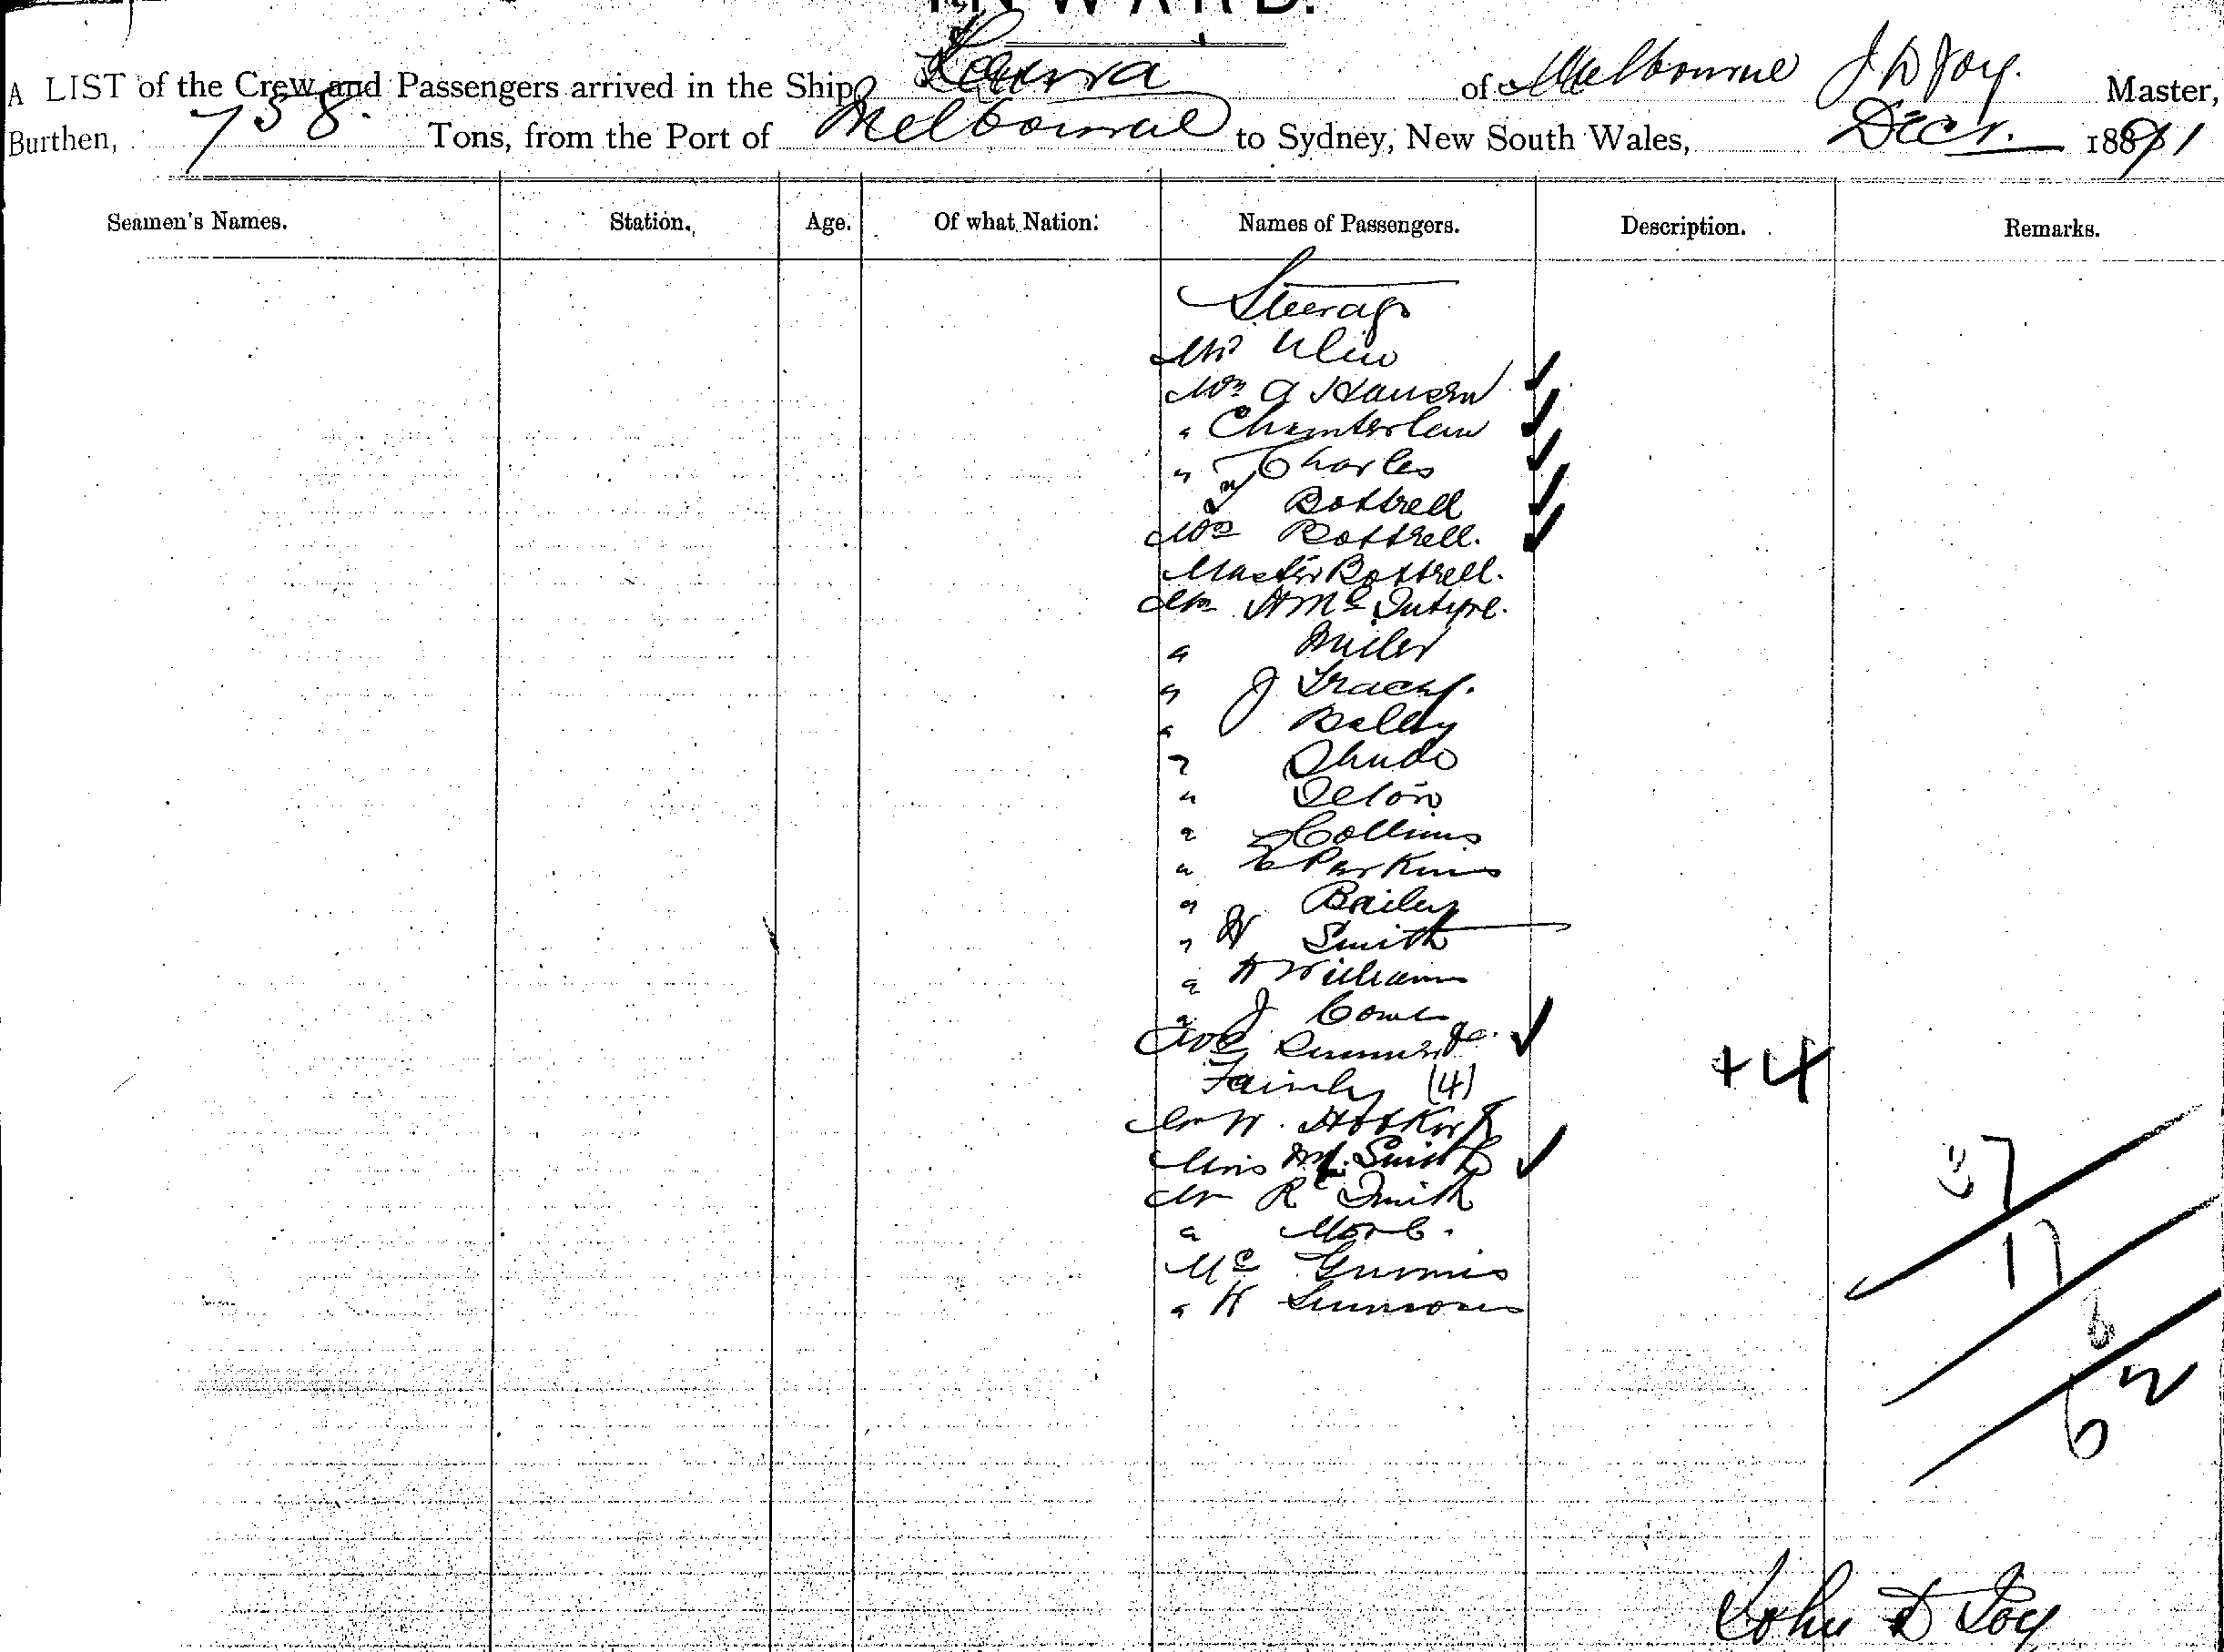 INWARD.
A LIST of the Crew and Passengers arrived in the Ship Laura of Melbourne J D Joy. Master,
Burthen, 758. Tons, from the Port of Melbourne to Sydney, New South Wales, Decr. 1891
Seamen's Names. Station. Age. Of what Nation. Names of Passengers. Description. Remarks.
Steerage
Mr
Mrs A Hansen
" Chamberlain
" Charles
" Bottrell
Mrs Bottrell.
Master Bottrell.
Mr H McIntyre.
" Miller
" J Tracey.
"
"
"
" Collins
" E Parkins
" Bailey
" H Smith
" H Williams
" J
&
Family (4) +4
Mr W.
Miss M. Smith
Mr R Smith
"
Mc Ginnis
" H Simmons
37
17
6
62
John D Joy